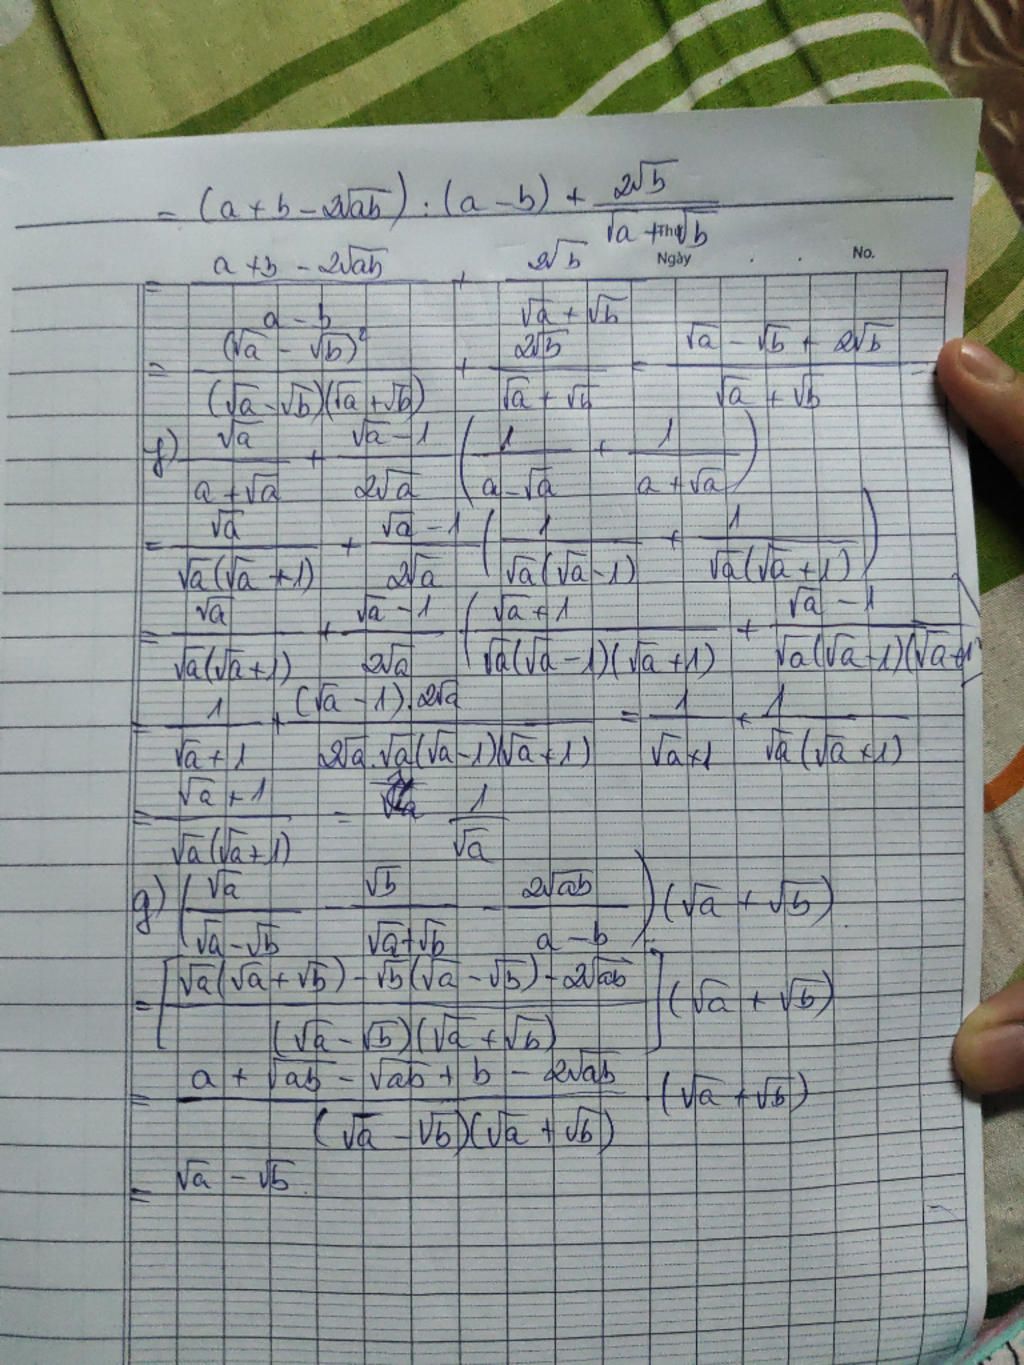 = (a + b - 2√ab) : (a - b) + 2√b / (√a + √b)
Thứ
Ngày . . No.
= (a + b - 2√ab) / (a - b) + 2√b / (√a + √b)
= (√a - √b)² / ((√a - √b)(√a + √b)) + 2√b / (√a + √b) = (√a - √b + 2√b) / (√a + √b)
f) √a / (a + √a) + (√a - 1) / 2√a (1 / (a - √a) + 1 / (a + √a))
= √a / (√a(√a + 1)) + (√a - 1) / 2√a (1 / (√a(√a - 1)) + 1 / (√a(√a + 1)))
= √a / (√a(√a + 1)) + (√a - 1) / 2√a · ((√a + 1) / (√a(√a - 1)(√a + 1)) + (√a - 1) / (√a(√a - 1)(√a + 1)))
= 1 / (√a + 1) + (√a - 1).2√a / (2√a.√a(√a - 1)(√a + 1)) = 1 / (√a + 1) + 1 / (√a(√a + 1))
= (√a + 1) / (√a(√a + 1)) = 1 / √a
g) (√a / (√a - √b) - √b / (√a + √b) - 2√ab / (a - b)) (√a + √b)
= [(√a(√a + √b) - √b(√a - √b) - 2√ab) / ((√a - √b)(√a + √b))] (√a + √b)
= (a + √ab - √ab + b - 2√ab) / ((√a - √b)(√a + √b)) (√a + √b)
= √a - √b.